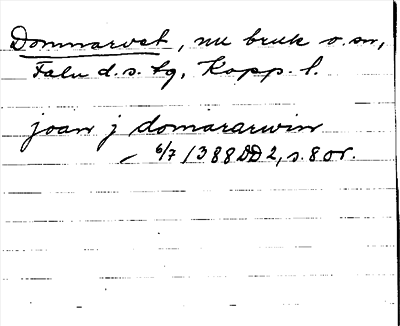 Domnarvet, nu bruk o. sn,
Falu d. s. tg, Kopp. l.
joan j domararwin
6/7 1388 DD 2, s. 8 or.